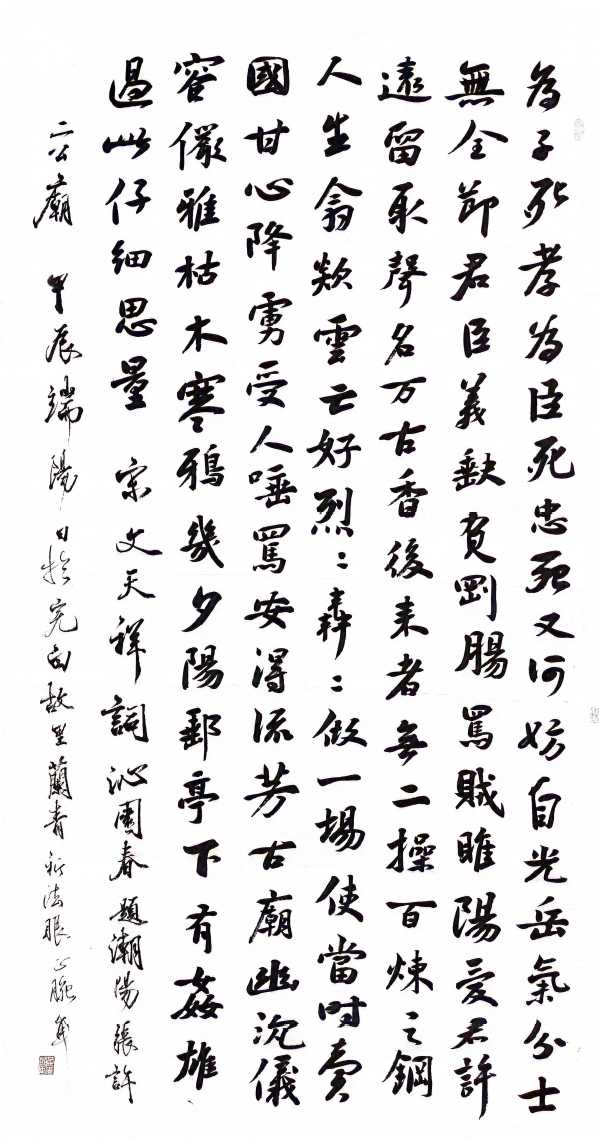 為子死孝為臣死忠死又何妨自光岳氣分士
無全節君臣義缺負剛腸罵賊睢陽愛君許
遠留取聲名万古香後来者無二操百煉之鋼
人生翕欻雲亡好烈:轟:做一場使當時賣
國甘心降虜受人唾罵安得流芳古廟幽沉儀
容儼雅枯木寒鴉幾夕陽郵亭下有姦雄
過此仔細思量 宋文天祥詞沁園春題潮陽張許
二公廟 甲辰端陽日於 故里蘭青 法眼